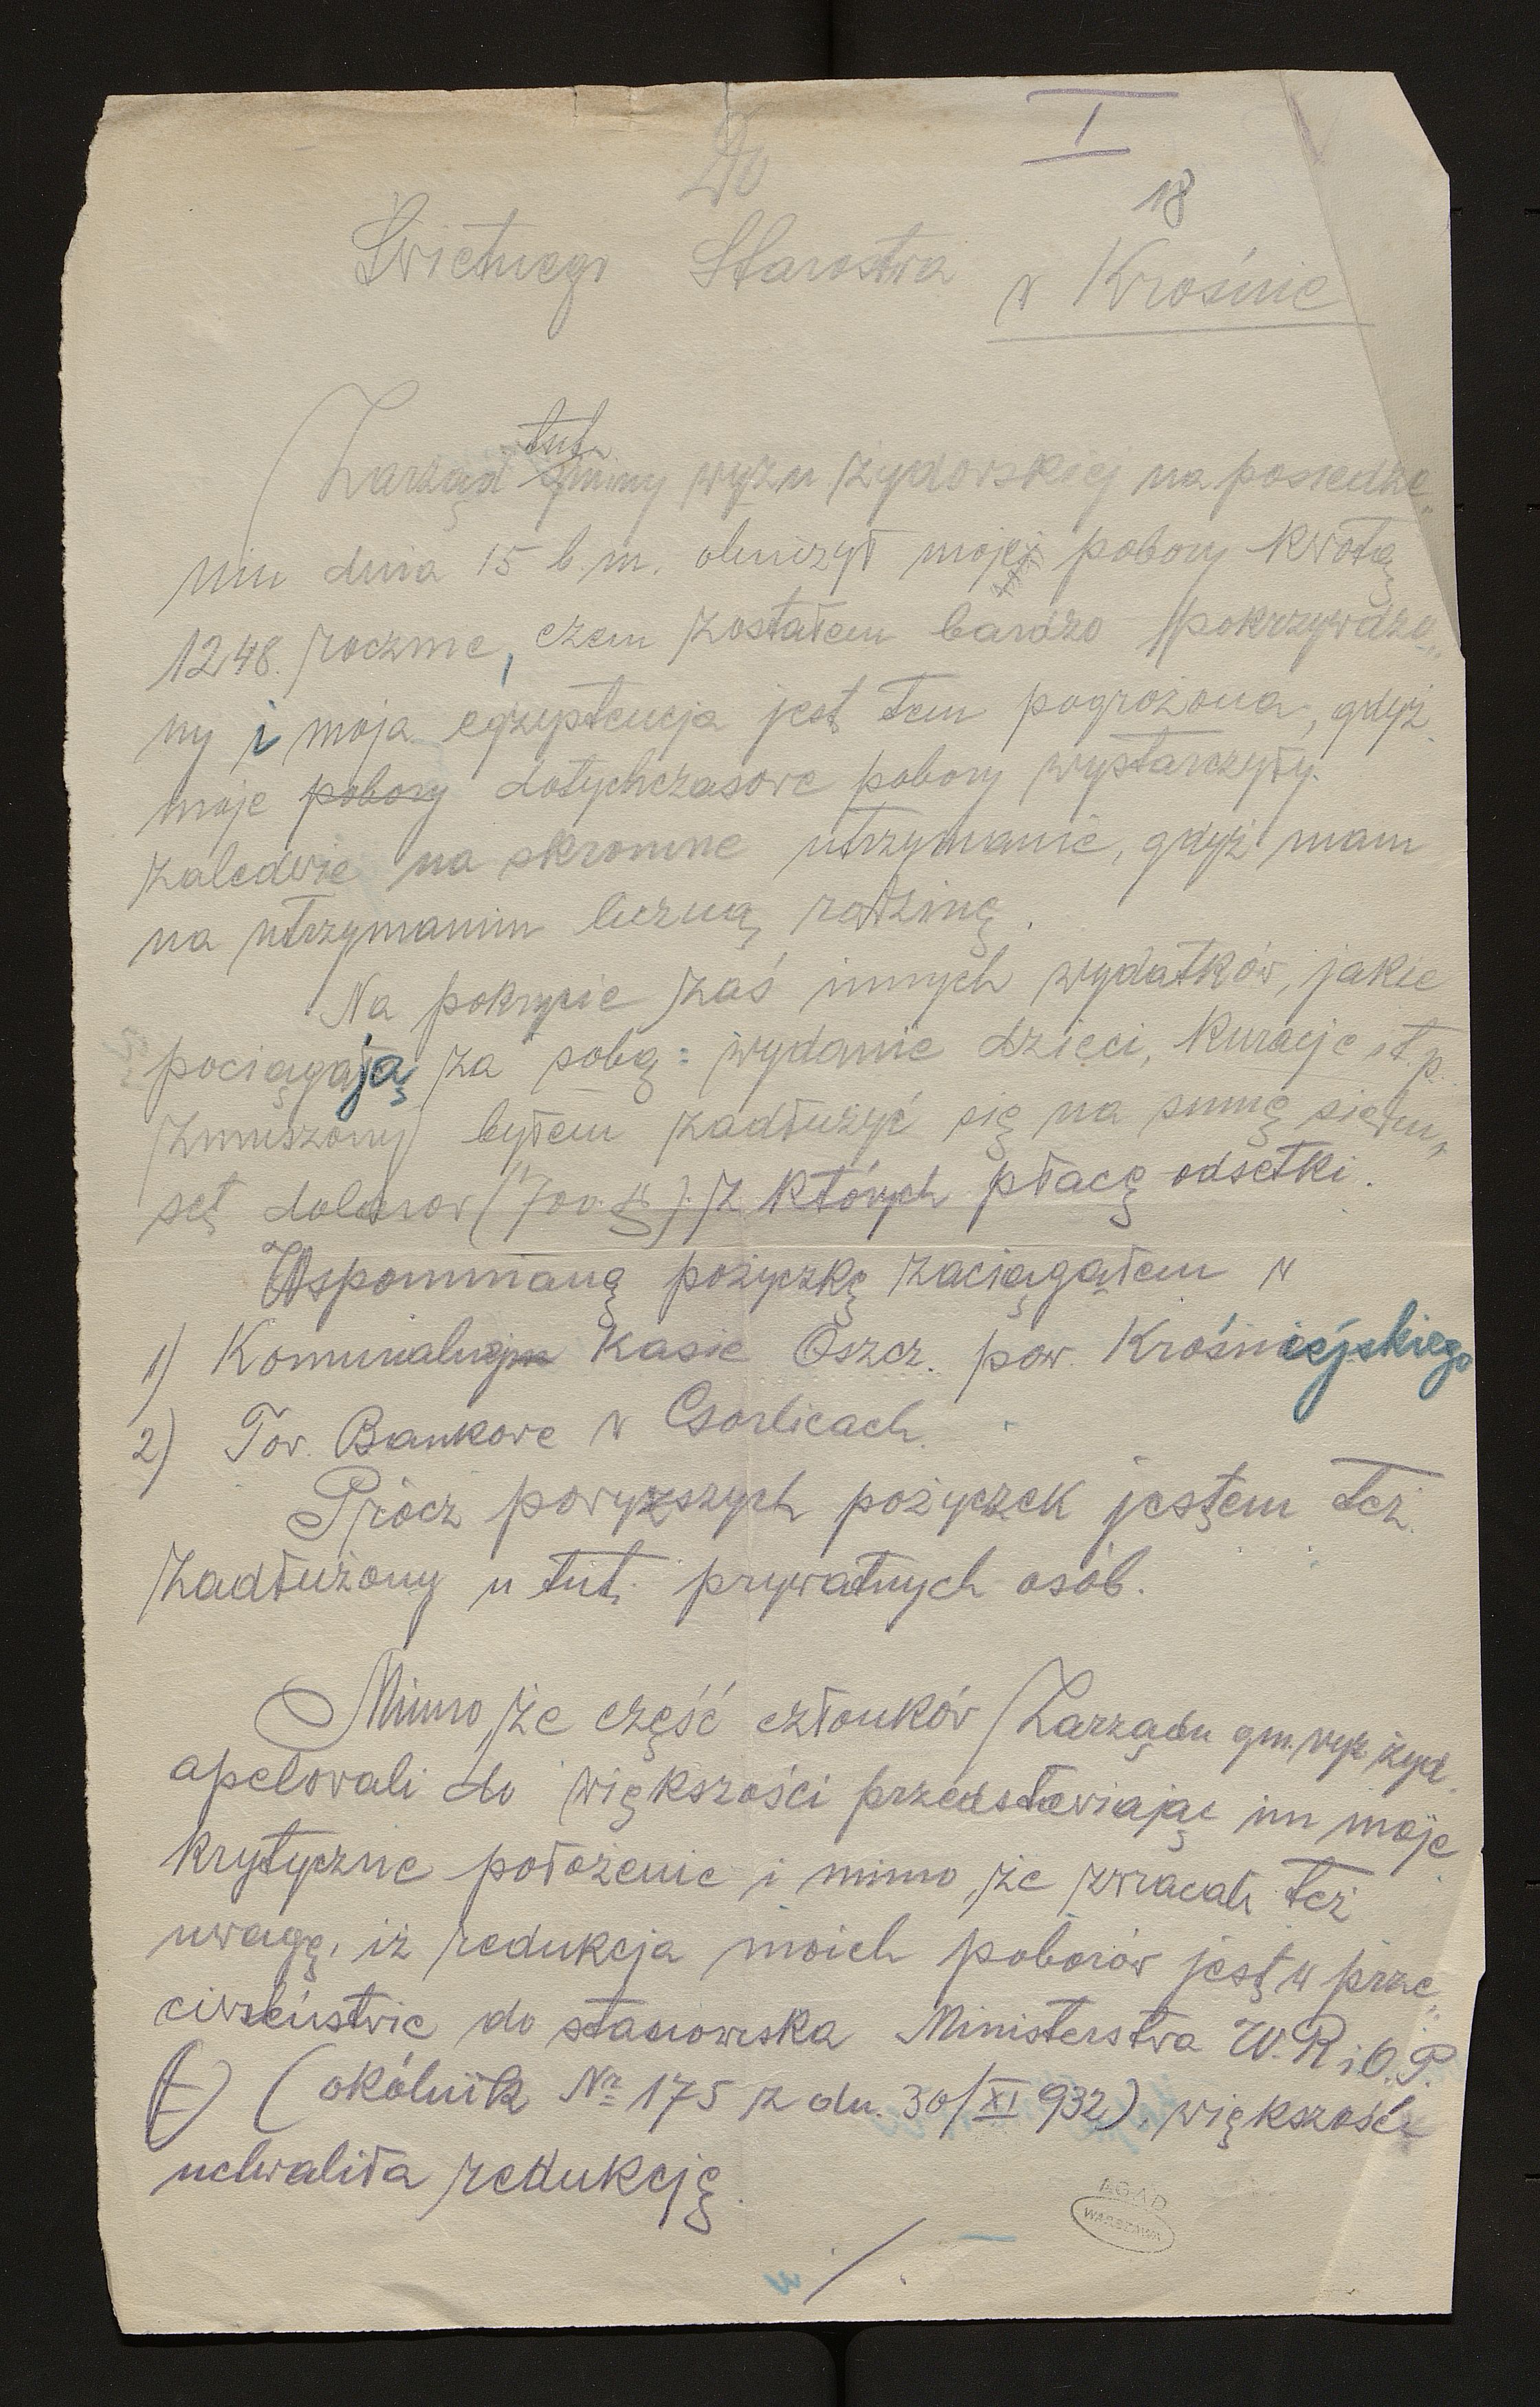 I
18
Do
Świetnego Starostwa w Krośnie
tut.
Zarząd gminy wyzn żydowskiej na posiedze„
niu dnia 15 b.m. obniżył moje pobory kwotą
1248. rocznie, czem zostałem bardzo pokrzywdzo„
ny i moja egzystencja jest tem pogrożona, gdyż
moje pobory dotychczasowe pobory wystarczyły
zaledwie na skromne utrzymanie, gdyż mam
na utrzymaniu liczną rodzinę.
Na pokrycie zaś innych wydatków, jakie
pociągają za sobą: wydanie dzieci, kuracje it.p.
zmuszony byłem zadłużyć się na sumę siedm„
set dolarow (700.$) z których płacę odsetki.
Wspomnianą pożyczkę zaciągałem w
1) Komunalnej Kasie Oszcz. pow. Krośnieńskiego
2) Tow. Bankowe w Gorlicach.
Prócz powyższych pożyczek jestem też
zadłużony u tut. prywatnych osób.
Mimo, że część członków Zarządu gm. wyz żyd.
apelowali do większości przedstawiając im moje
krytyczne położenie i mimo, że zwracali też
uwagę, iż redukcja moich poborów jest w prze„
ciwieństwie do stanowiska Ministerstwa W.R i O.P.
(okólnik Nr 175 z dn. 30/XI 932), większość
uchwaliła redukcję.
./.
AGAD
WARSZAWA